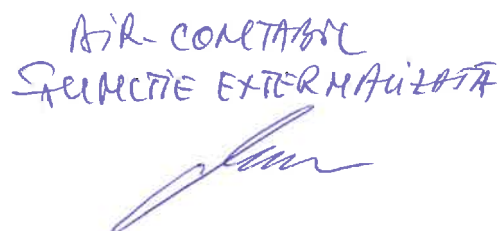 AIR-CONTABIL
FUNCTIE EXTERNALIZATA